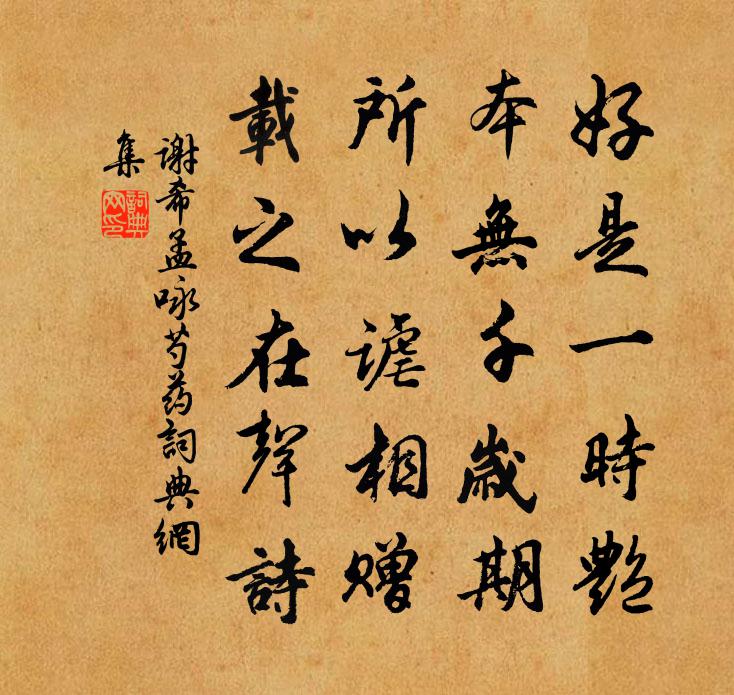 好是一時艷
本無千歲期
所以謔相贈
載之在聲詩
謝希孟咏芍药詞典網
集
詞典网印